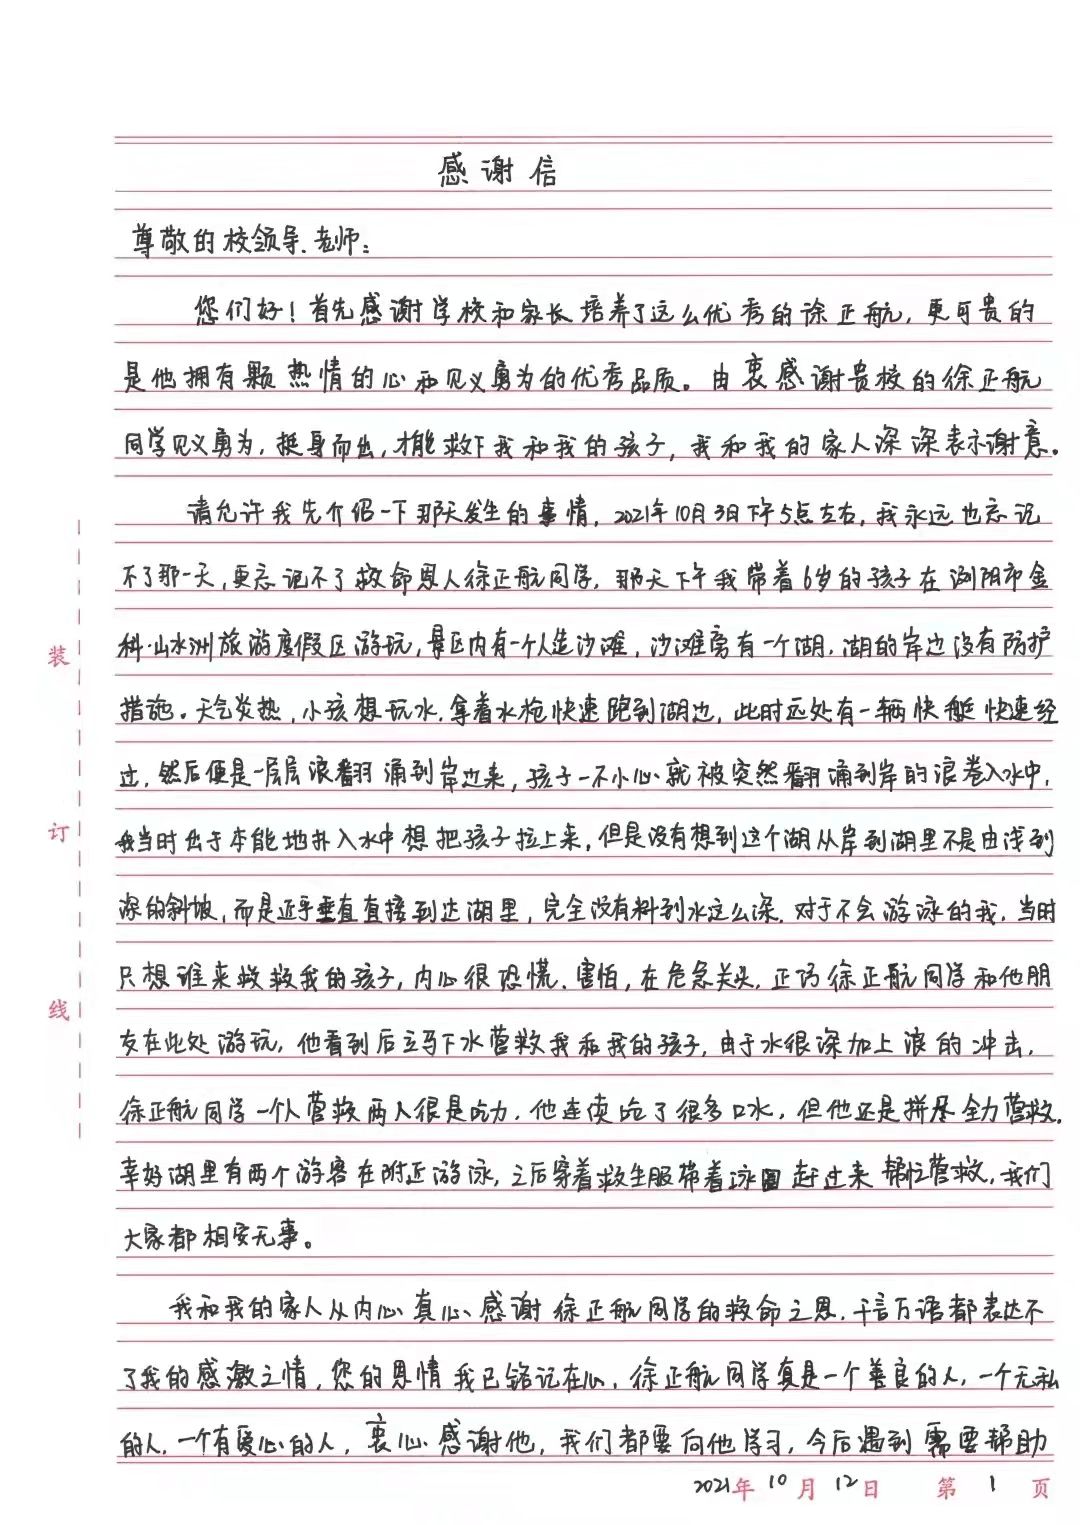 感谢信
尊敬的校领导、老师：
您们好！首先感谢学校和家长培养了这么优秀的徐正航，更可贵的
是他拥有颗热情的心和见义勇为的优秀品质。由衷感谢贵校的徐正航
同学见义勇为，挺身而出，才能救下我和我的孩子，我和我的家人深深表示谢意。
请允许我先介绍一下那天发生的事情，2021年10月3日下午5点左右，我永远也忘记
不了那一天，更忘记不了救命恩人徐正航同学，那天下午我带着6岁的孩子在浏阳市金
科·山水洲旅游度假区游玩，景区内有一个人造沙滩，沙滩旁有一个湖，湖的岸边没有防护
措施。天气炎热，小孩想玩水，拿着水枪快速跑到湖边，此时远处有一辆快艇快速经
过，然后便是一层层浪翻涌到岸边来，孩子一不小心就被突然翻涌到岸的浪卷入水中，
我当时出于本能地扑入水中想把孩子拉上来，但是没有想到这个湖从岸到湖里不是由浅到
深的斜坡，而是近乎垂直直接到达湖里，完全没有料到水这么深，对于不会游泳的我，当时
只想谁来救救我的孩子，内心很恐慌、害怕，在危急关头，正巧徐正航同学和他朋
友在此处游玩，他看到后立马下水营救我和我的孩子，由于水很深加上浪的冲击，
徐正航同学一个人营救两人很是吃力，他连续呛了很多口水，但他还是拼尽全力营救，
幸好湖里有两个游客在附近游泳，之后穿着救生服带着泳圈赶过来帮忙营救，我们
大家都相安无事。
我和我的家人从内心真心感谢徐正航同学的救命之恩，千言万语都表达不
了我的感激之情，您的恩情我已铭记在心，徐正航同学真是一个善良的人，一个无私
的人，一个有爱心的人，衷心感谢他，我们都要向他学习，今后遇到需要帮助
2021年10月12日 第1页
装
订
线